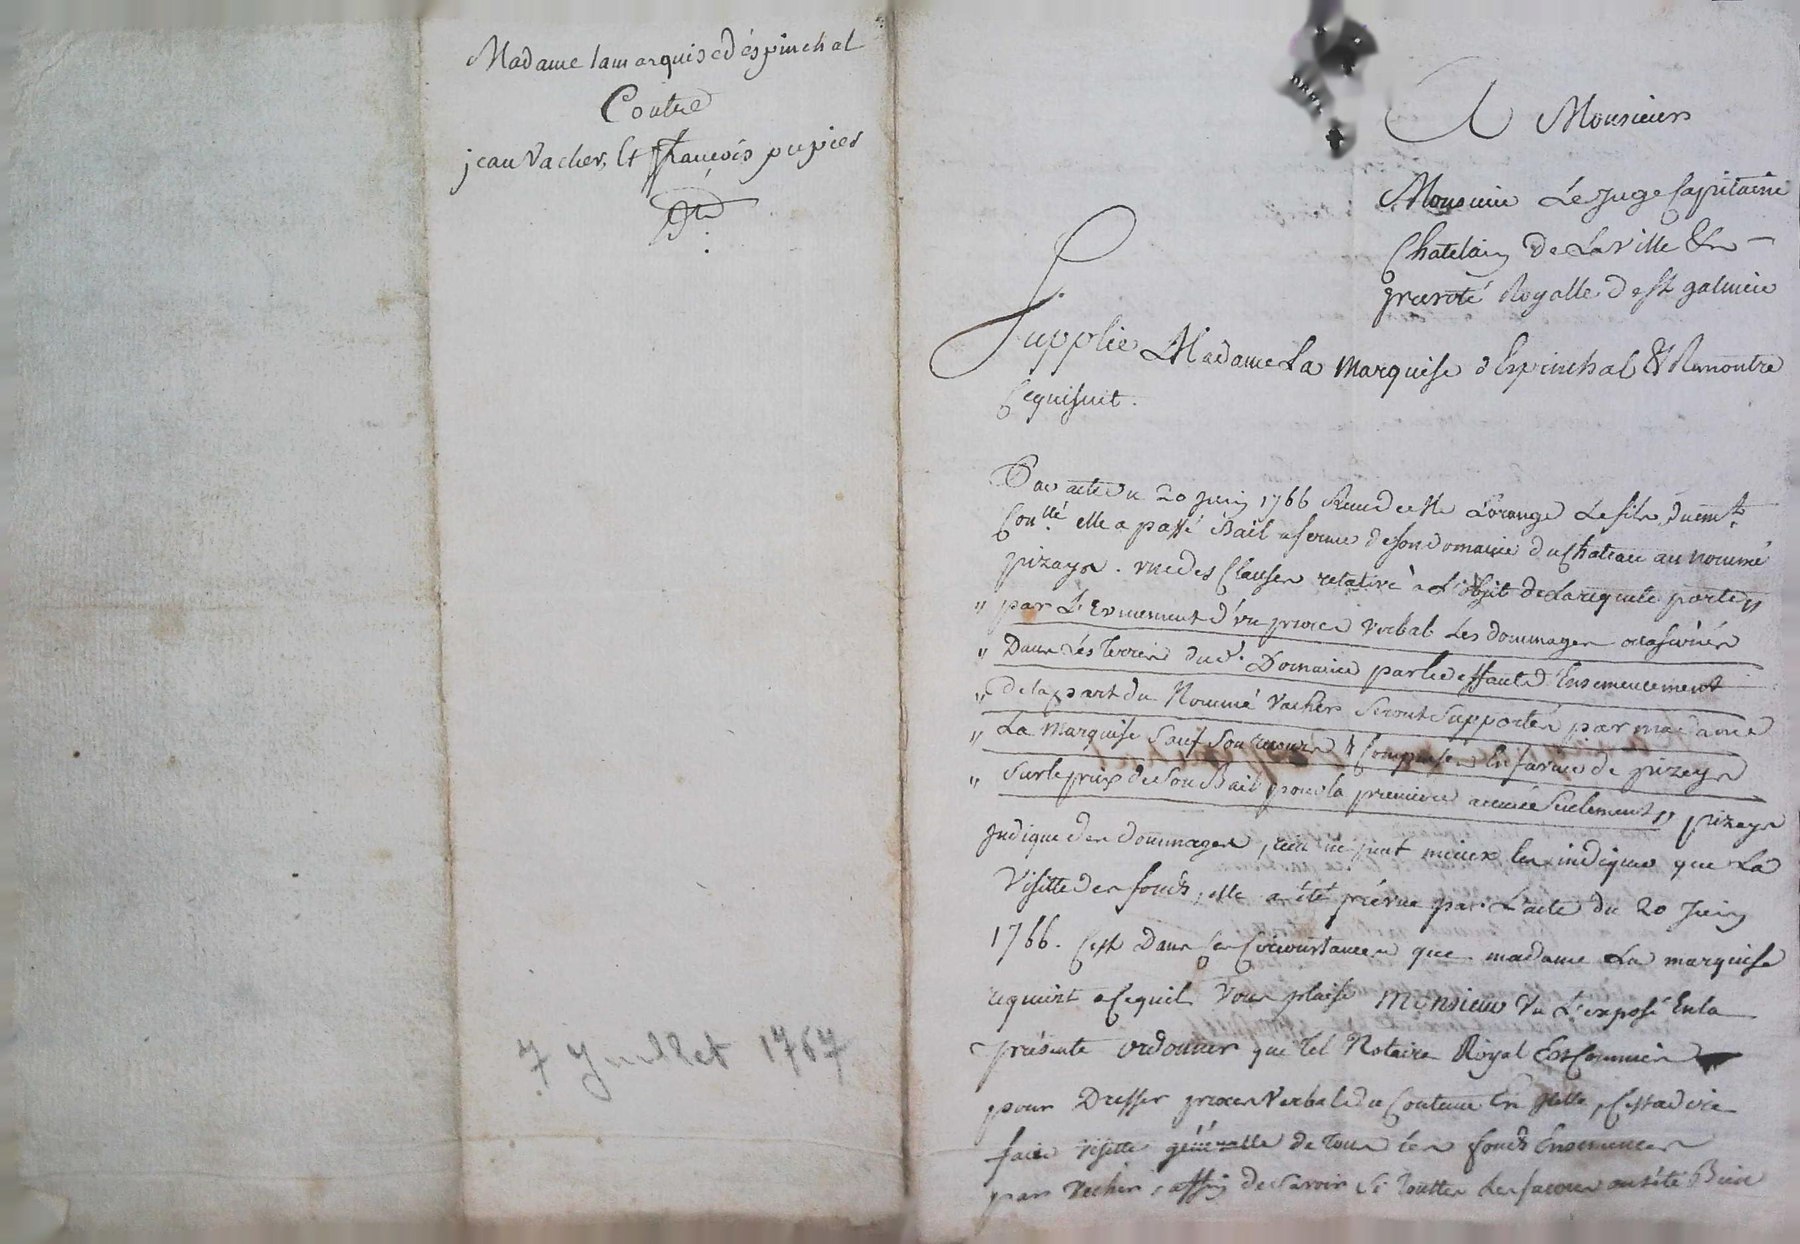 Madame lamarquise déspinchal
Contre
jean Vacher, Et françois pupier
7 Juillet 1767
A Monsieur
Monsieur Le Juge Capitaine
Chatelain De La Ville & En
prevoté Royalle de St galmier
Supplie Madame La Marquise d'Espinchal & Remontre
Cequisuit.
Par acte du 20 juin 1766 Reçu de Me Lorange Le fils, duemt
Conllé elle a passé Bail a ferme de son domaine du Chateau au nommé
pizays. une des Clauses relative à L'objet de La requete porte "
" par L'Evenement d'un procès Verbal Les dommages ocasionés
" Dans Les Terres dud. Domaine par le deffaut d'Ensemencement
" de la part du Nommé Vacher Seront Supportés par madame
" La Marquise Sauf Son recours & Compensés En faveur de pizays
" Sur le prix de Son Bail pour la premiere année Seulement " pizays
Indique des dommages, rien ne peut mieux les indiquer que La
Visitte des fonds, elle a été prévue par L'acte du 20 Juin
1766. C'est Dans Ces Circonstances que madame La marquise
requiert a Cequil Vous plaise Monsieur Vu L'exposé En la
présente ordonner que tel Notaire Royal Est Commis
pour Dresser procès Verbal du Contenu En Icelle, C'est adire
faire Visitte généralle de tous les fonds Ensemencés
par Vacher, affin de Savoir Si Touttes Les façons ont été Bien